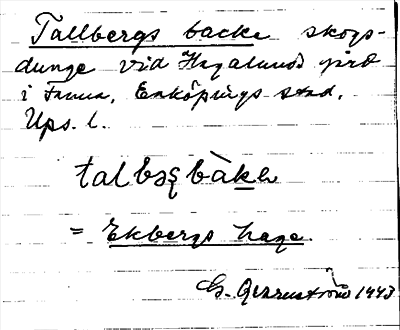 Tallbergs backe skogs-
dunge vid Hagalunds gård
i Fanna, Enköpings stad,
Ups. l.
talbæȩ bàkɐ
= Ekbergs hage
G. Qvarnström 1943